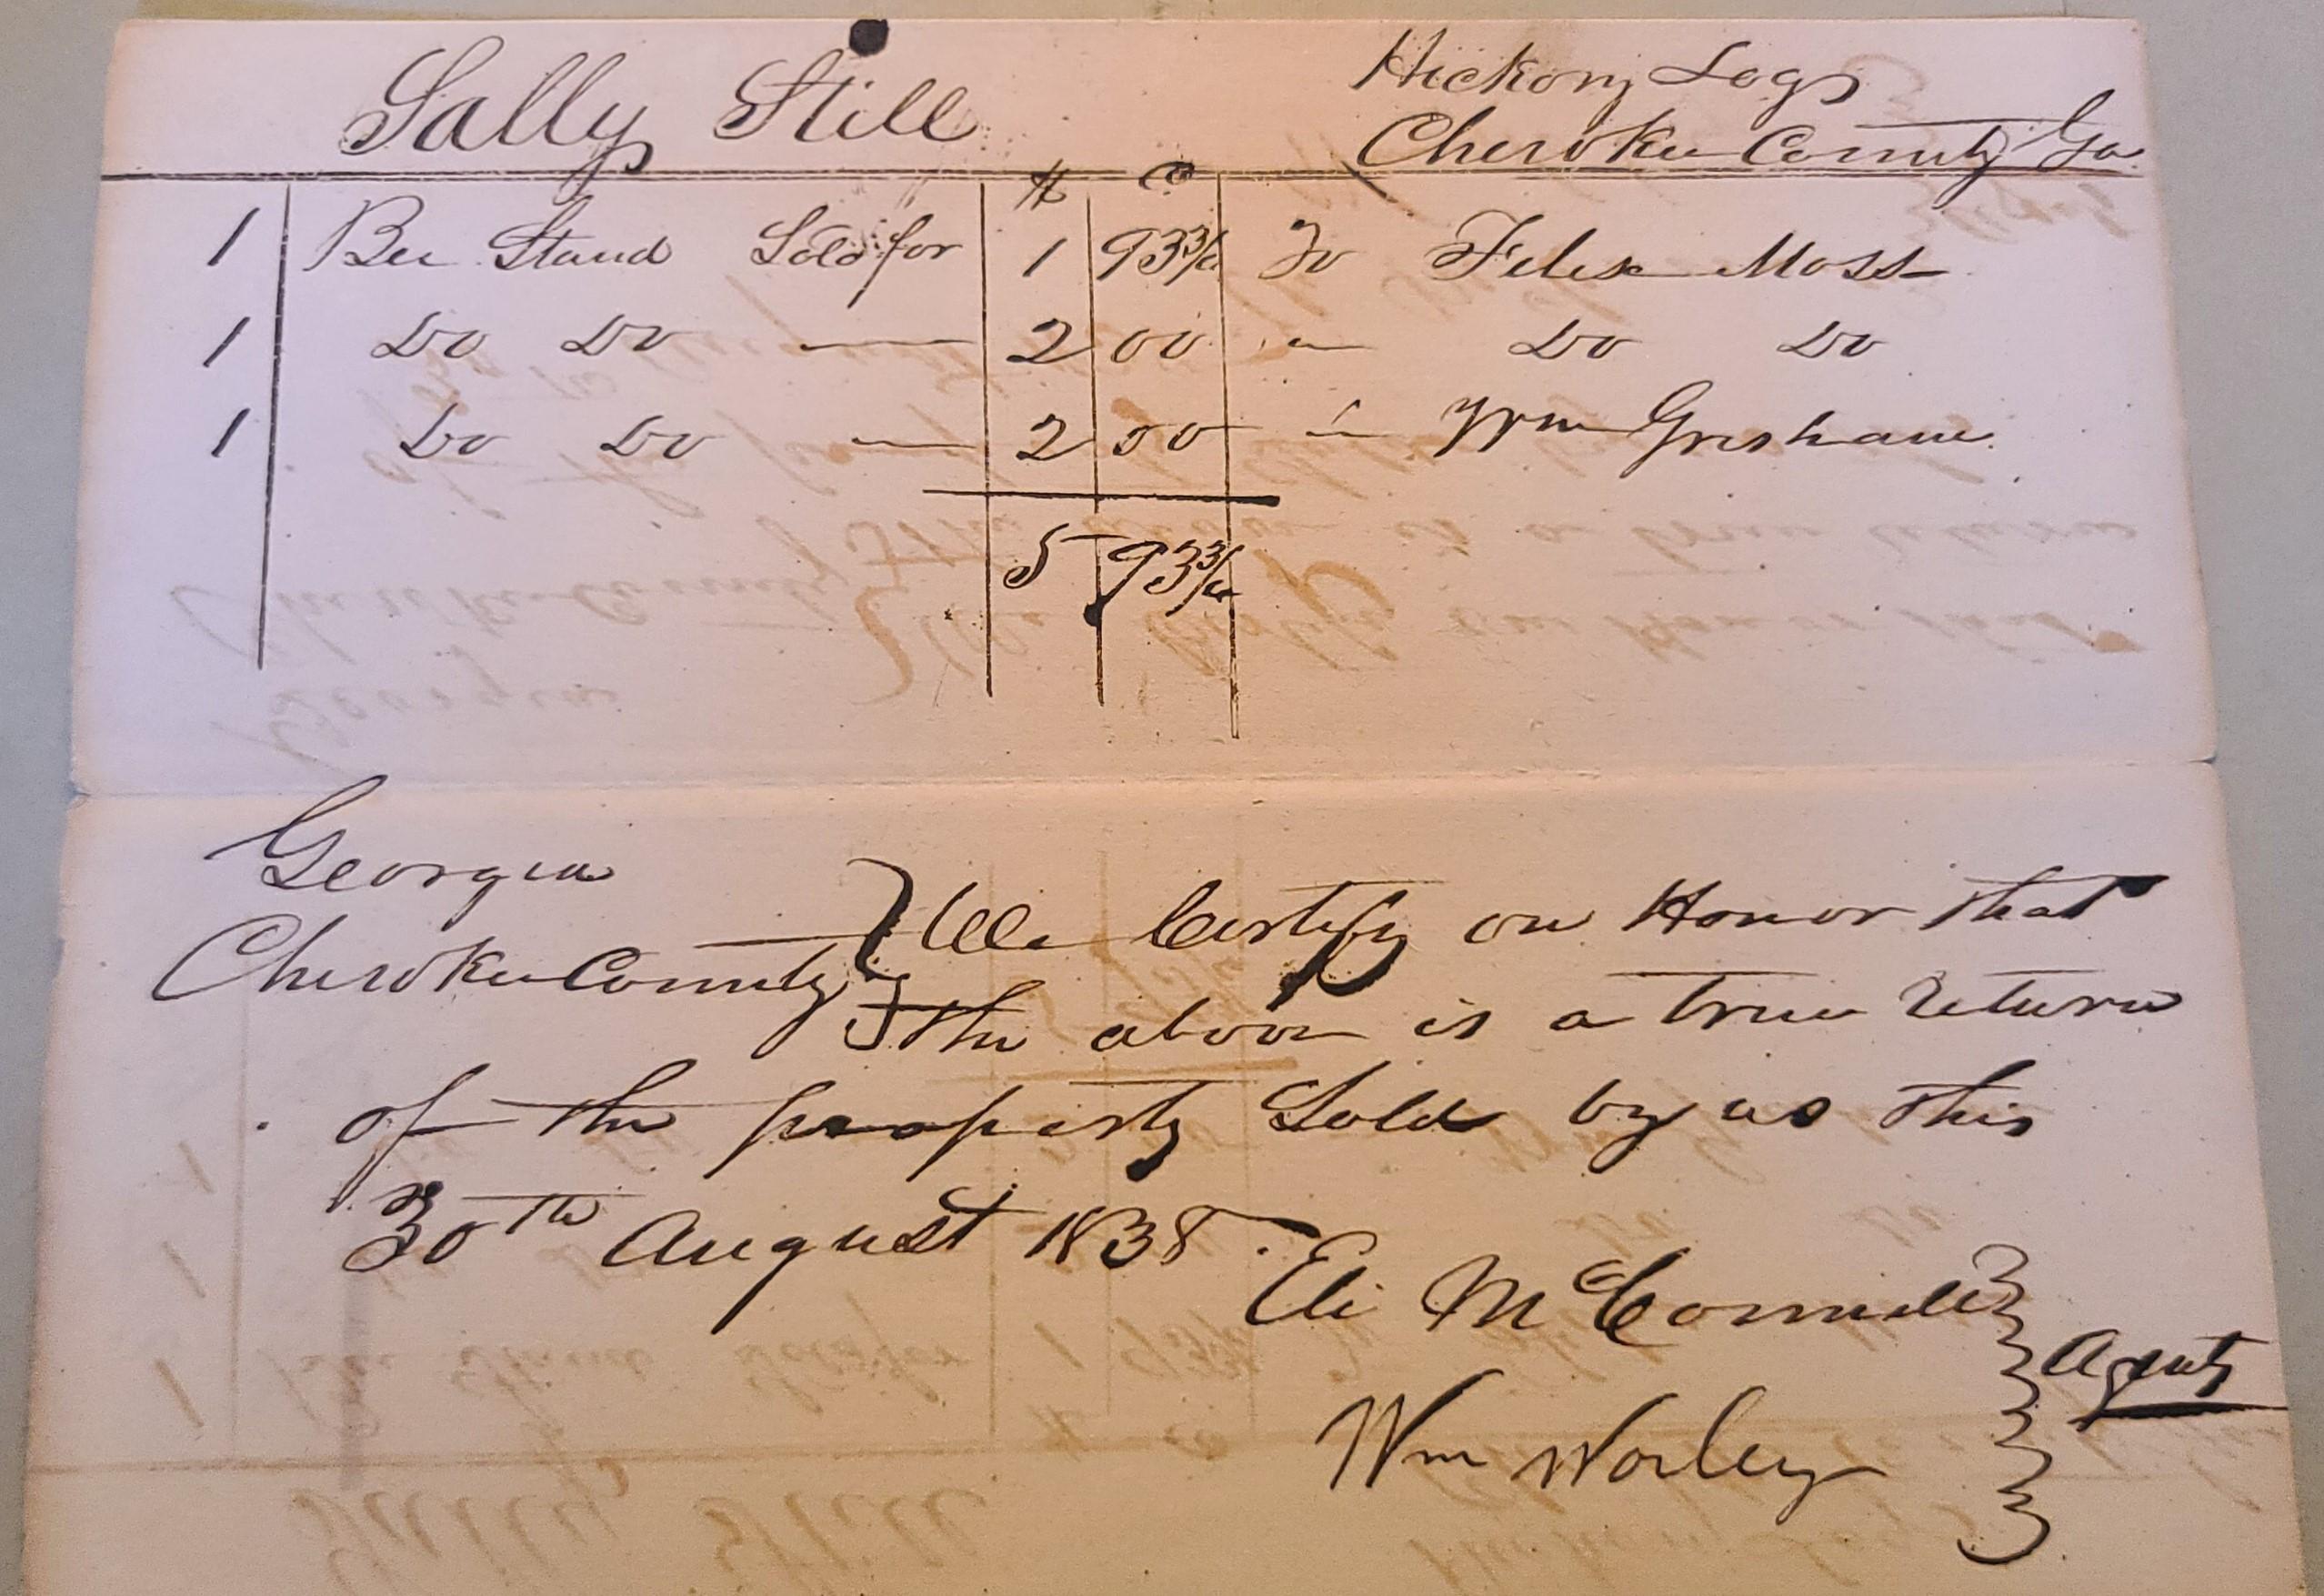 Sally Still
Hickory Logs
Cherokee County Ga
$ C
1 Bee Stand Sold for 1 93 3/4 To Felix Moss
1 Do Do — 2 00 " Do Do
1 Do Do — 2 00 " Wm Grisham
5 93 3/4
Georgia
Cherokee County } We Certify on Honor that
the above is a true return
of the property Sold by us this
30th August 1838.
Eli McConnell
Wm Worley } Agents